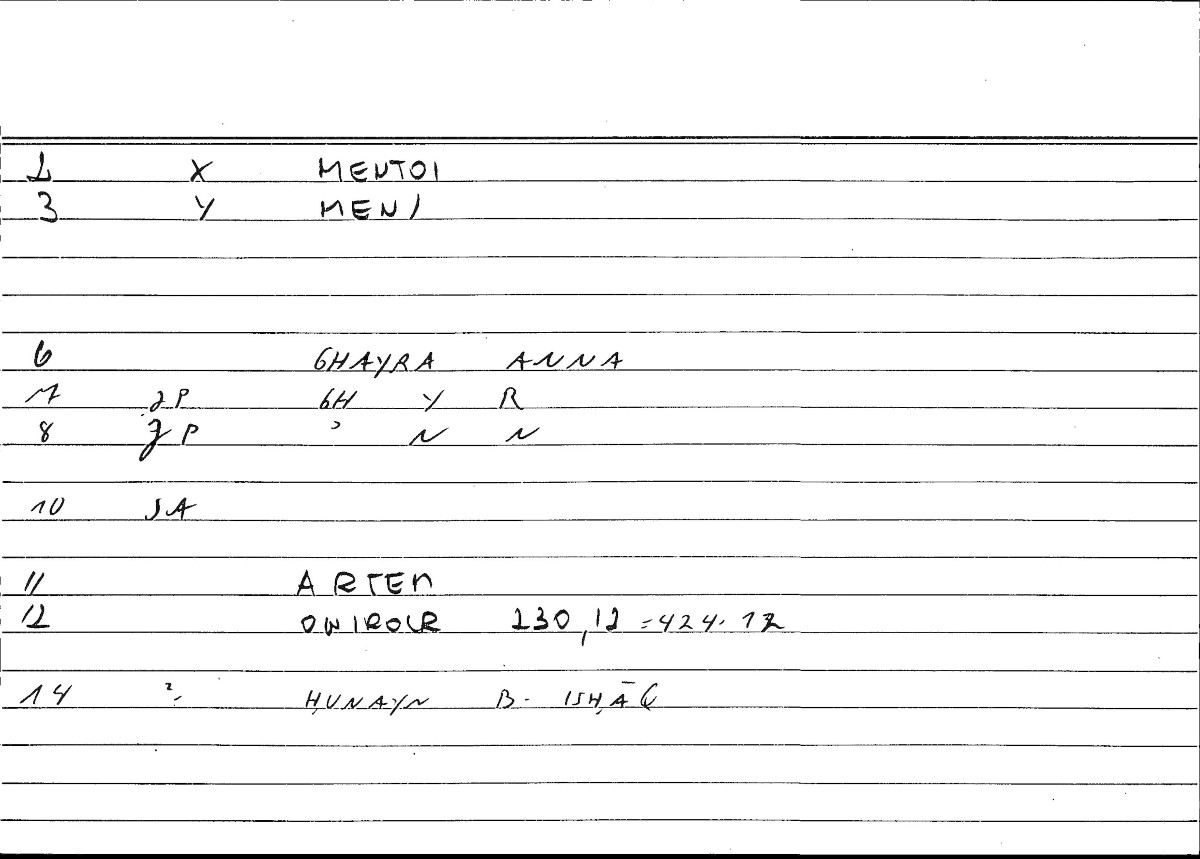 2 X MENTOI
3 Y MEN/
6 GHAYRA ANNA
7 JP GH Y R
8 JP ʾ N N
10 SA
11 ARTEM
12 ONIROCR 230,12 = 424.12
14 2. ḤUNAYN B. ISḤĀQ